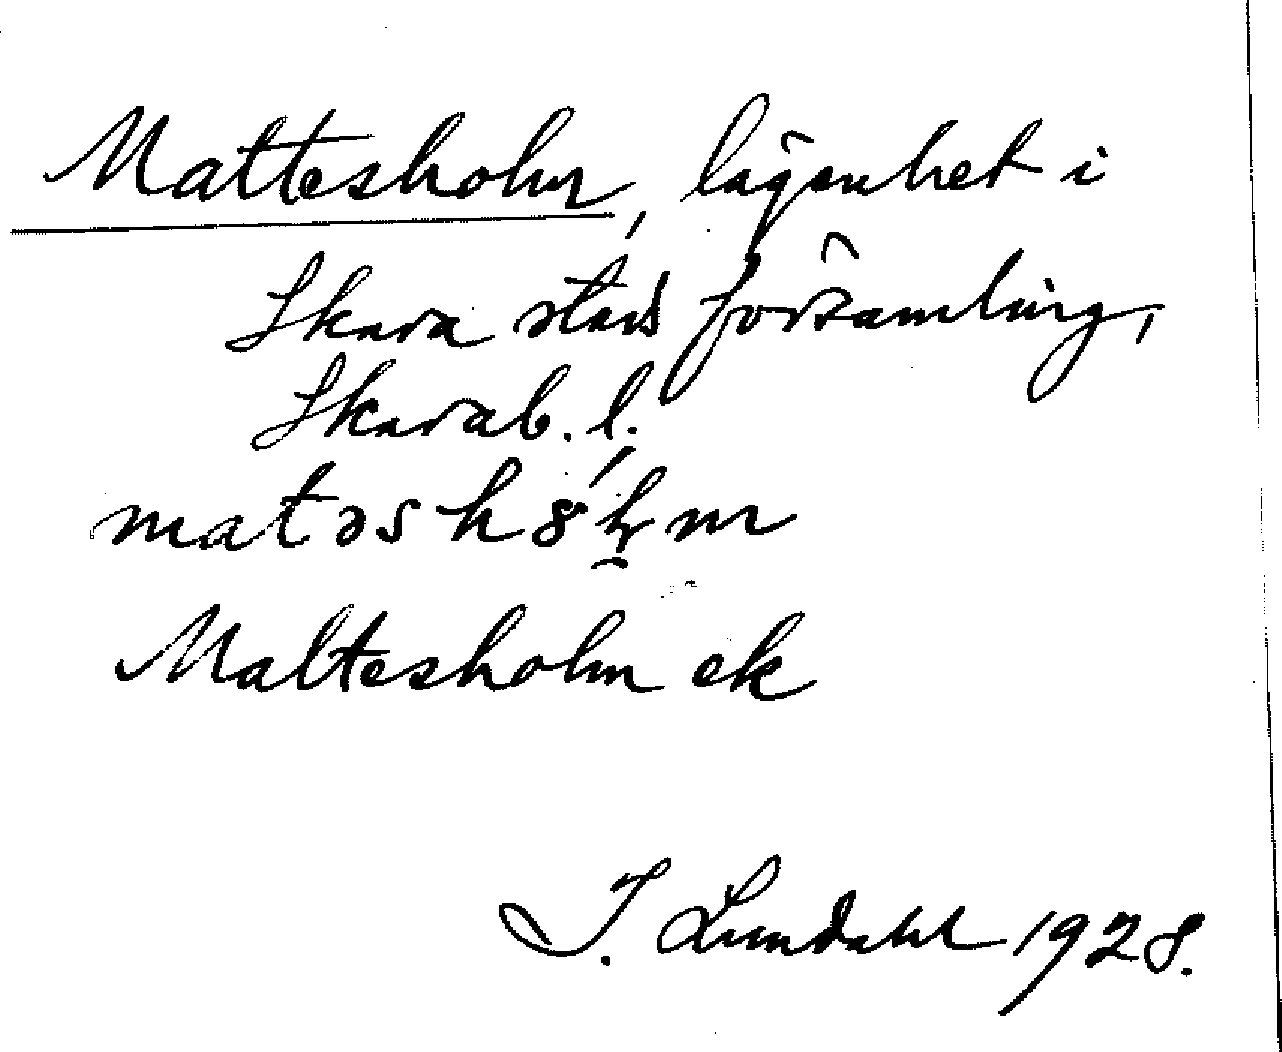 Mattesholm, lägenhet i
Skara stads församling,
Skarab. l.
Maltesholm ek
I. Lundahl 1928.